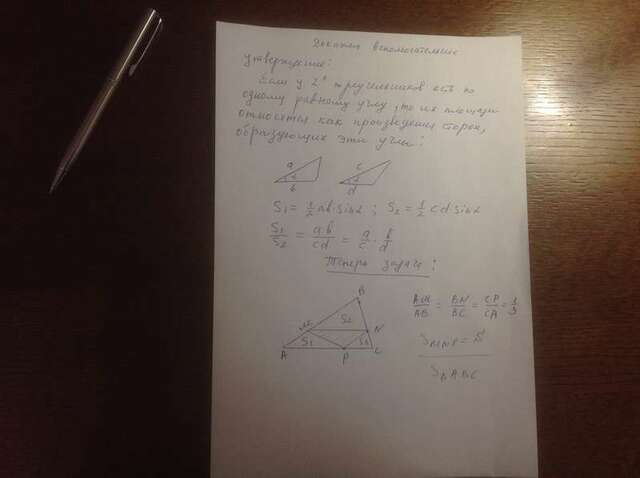 Докажем вспомогательное
утверждение:
Если у 2ˣ треугольников есть по
одному равному углу, то их площади
относятся как произведения сторон,
образующих эти углы:
a
α
b
c
α
d
S₁ = ½ ab·sinα ; S₂ = ½ cd sinα
S₁/S₂ = a·b/cd = a/c · b/d
Теперь задача:
B
M
S₂
N
S₁
S₃
A
P
C
AM/AB = BN/BC = CP/CA = 1/3
S MNP = S
S△ABC